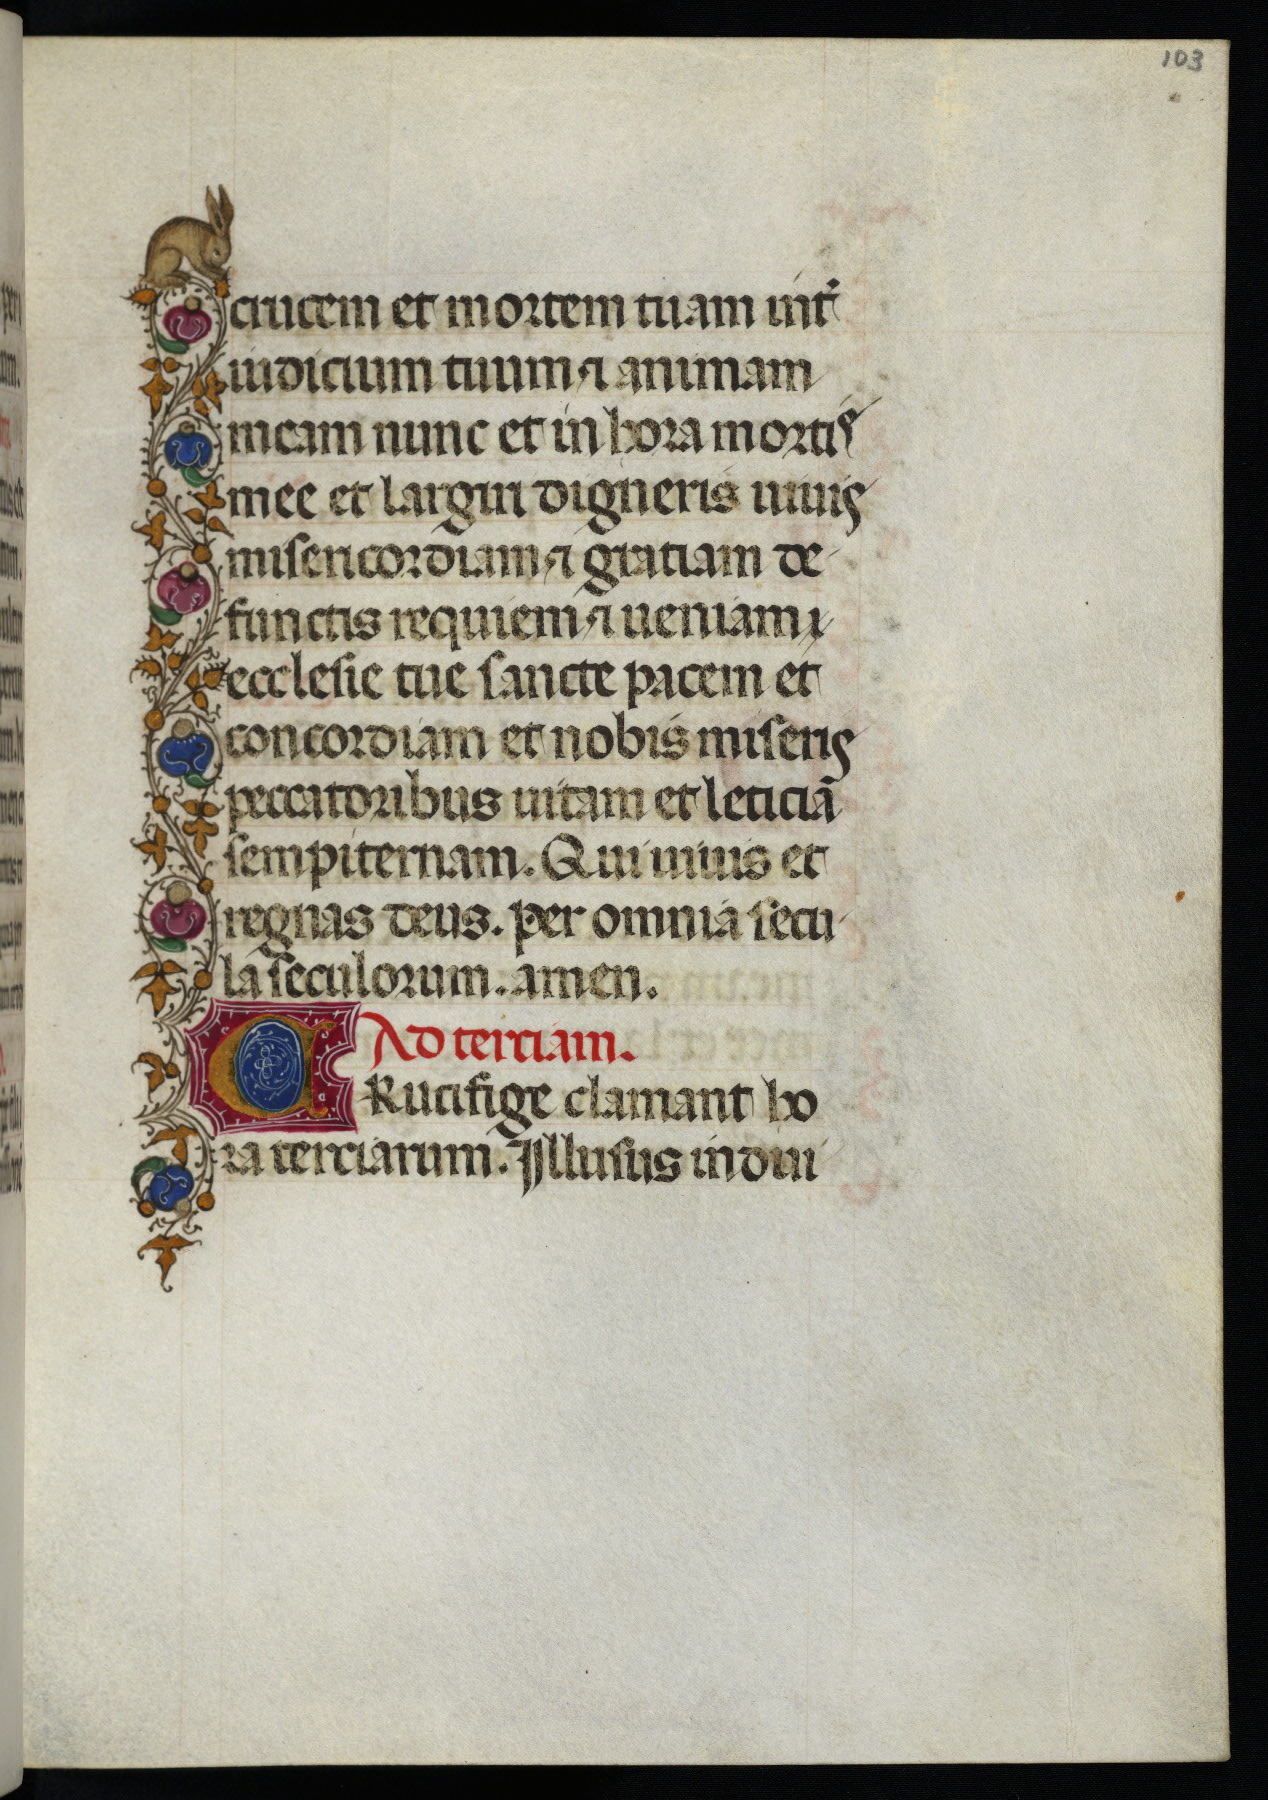 103
crucem et mortem tuam int̉
iudicium tuum ⁊ animam
meam nunc et in hora mortis
mee et largiri digneris uiuis
misericordiam ⁊ gratiam de
functis requiem ⁊ ueniam
ecclesie tue sancte pacem et
concordiam et nobis miseris
peccatoribus uitam et leticiā
sempiternam. Qui uiuis et
regnas deus. per omnia secu
la seculorum. amen.
Ad terciam.
CRucifige clamant ho
ra terciarum. Illusus indui